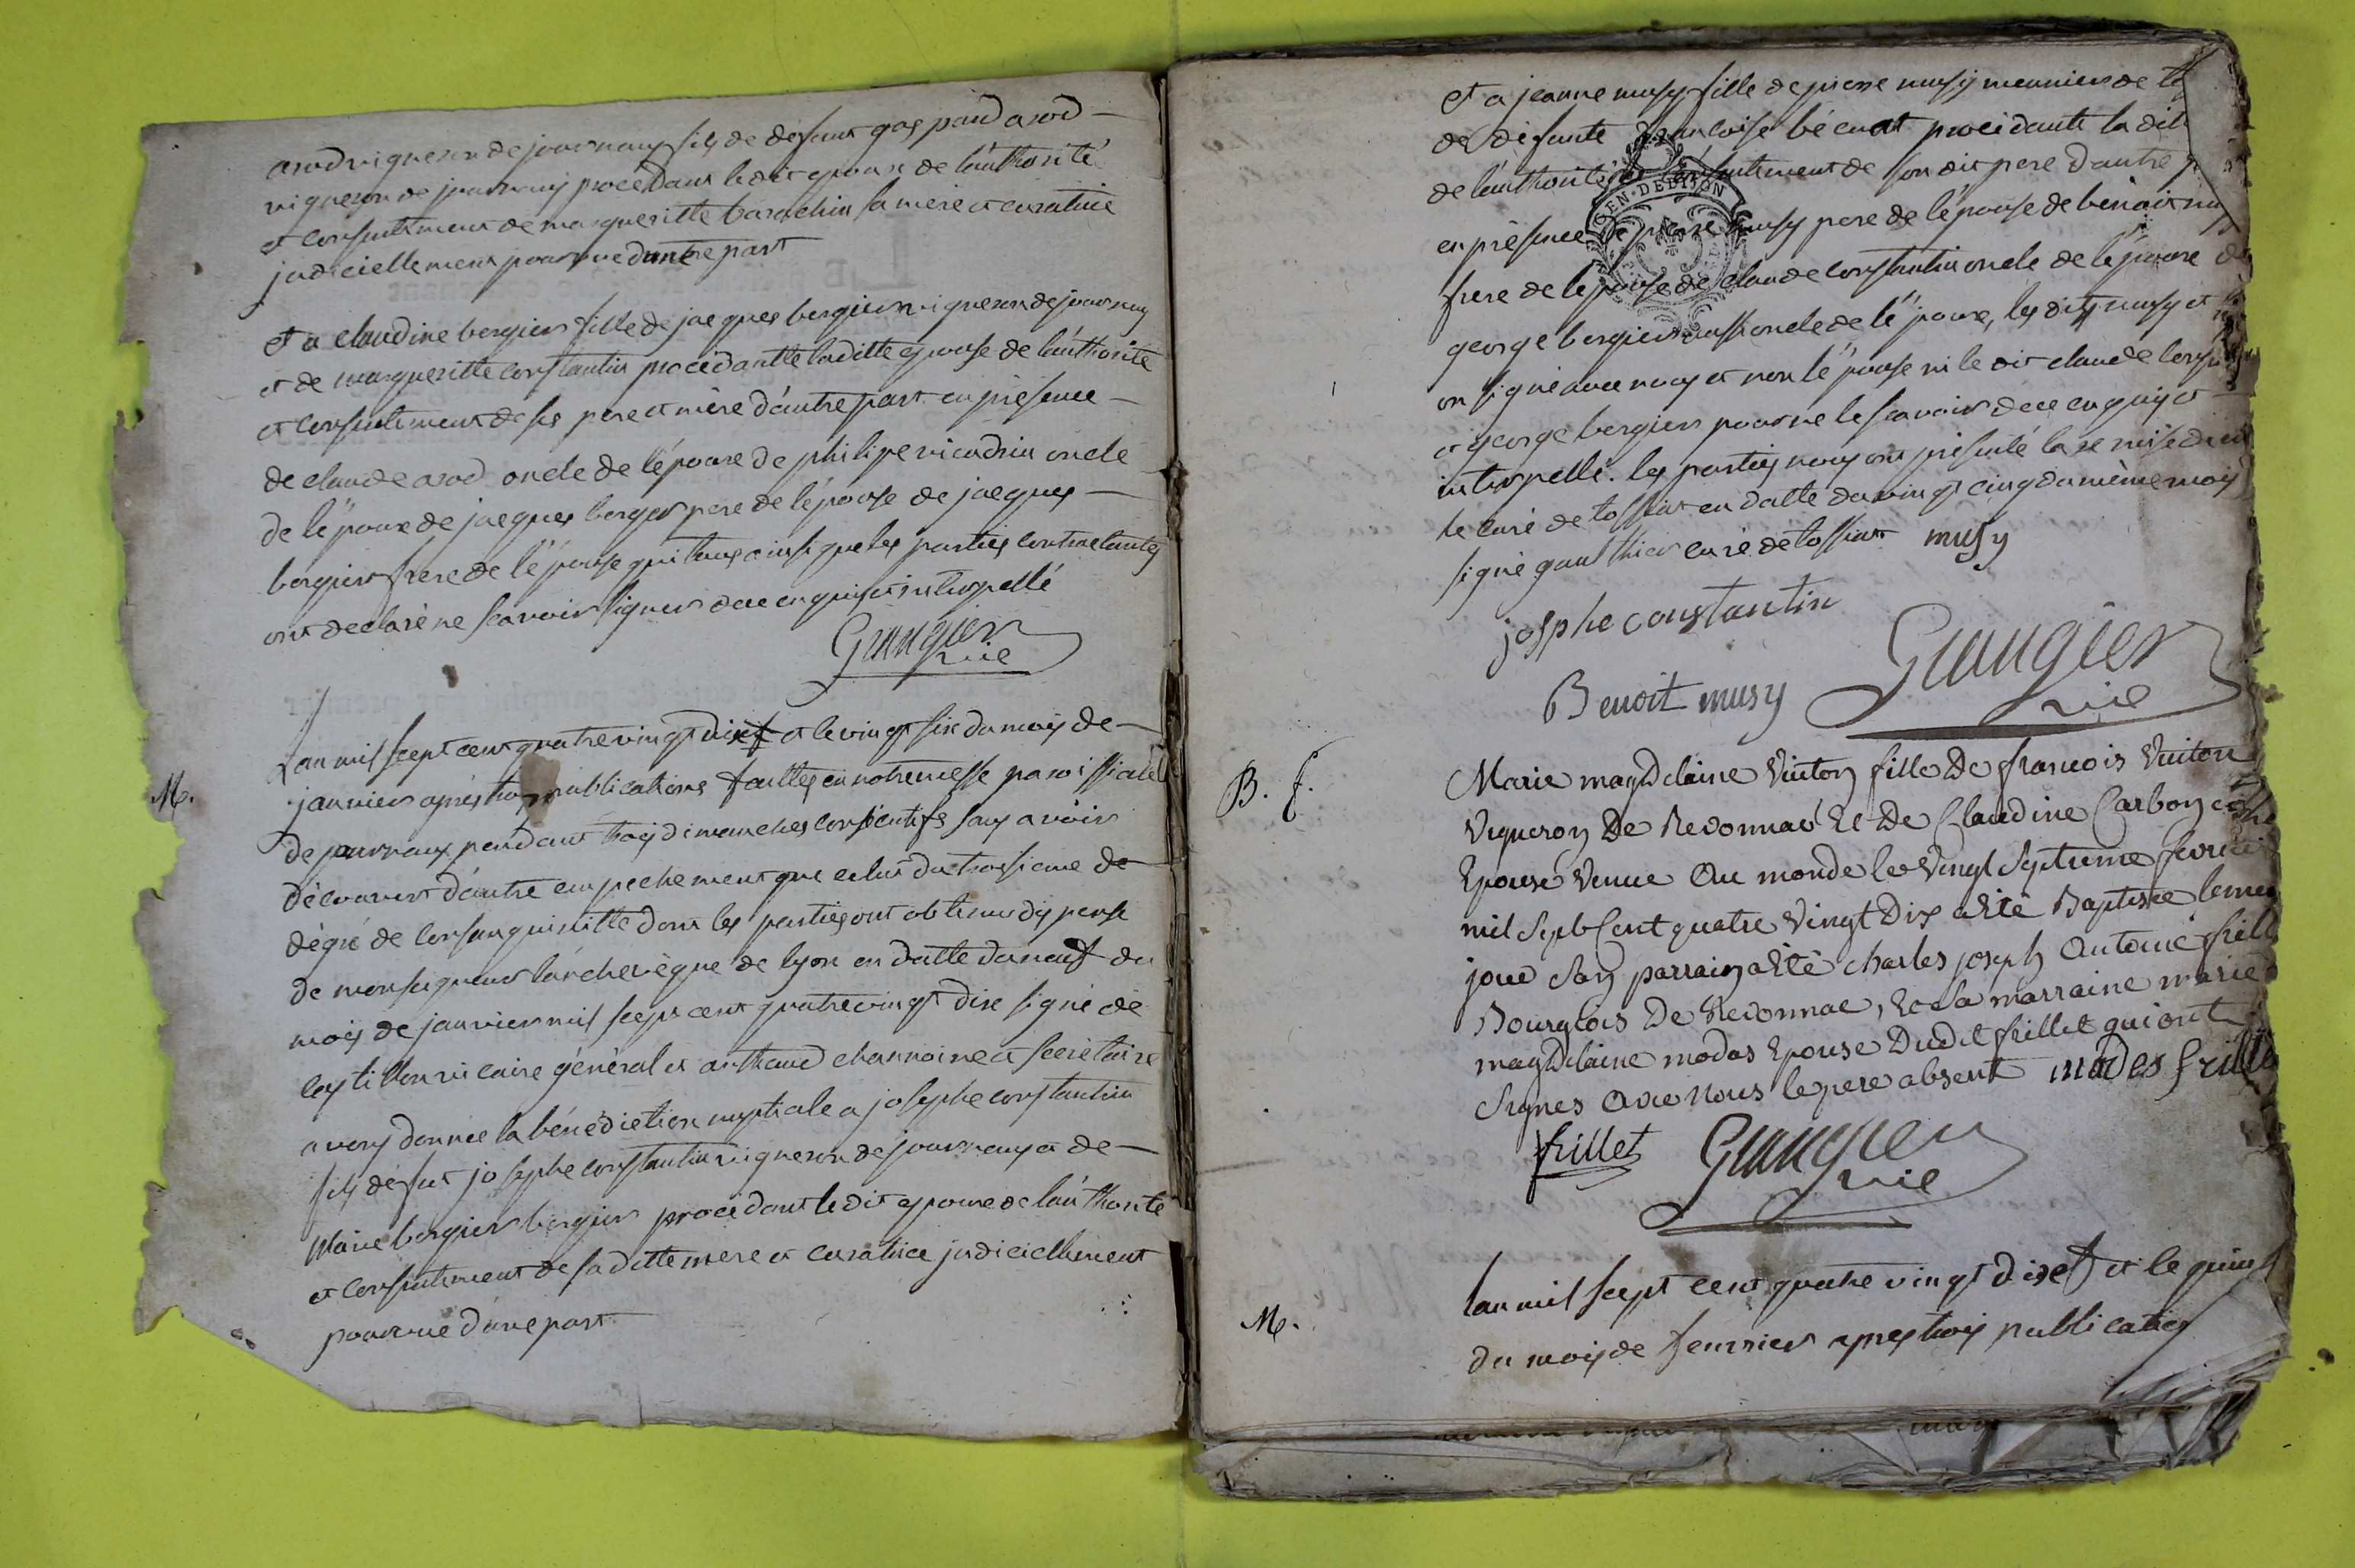 arod vigneron de journaux fils de défunt gaspard arod
vigneron de journaux procédant le dit epoux de l'authorité
et consentement de margueritte barachin sa mère et curatrice
judiciellement pourvue d'untre part
et a claudine bergier fille de jacques bergier vigneron de journaux
et de margueritte constantin procédantte laditte epouse de l'authorité
et consentement de ses pere et mère d'autre part en présence
de claude arod oncle de l'époux de philipe vicadrin oncle
de l'époux de jacques bergier pere de l'épouse de jacques
bergier frère de l'épouse qui tous ainsi que les parties contractantes
ont declaré ne scavoir signer de ce enquis et interpellé
Grangier
vic
M.
L'an mil sept cent quatre vingt dix et le vingt six du mois de
janvier après trois publications faittes en notre messe paroissiale
de journaux pendant trois dimanches consécutifs sans avoir
découvert d'autre empechement que celui du troisieme de
dégré de consanguinitté dont les parties ont obtenu dispense
de monseigneur l'archevèque de lyon en datte du neuf du
mois de janvier mil sept cent quatre vingt dix signé de
castillon vicaire général et arthaud channoine et secretaire
avons donnée la bénédiction nuptiale a josephe constantin
fils défut josephe constantin vigneron de journaux et de
Marie bergier bergier procédant le dit epoux de l'authorité
et consentement de sa ditte mere et curatrice judiciellement
pourvue d'une part
et a jeanne musy fille de pierre musy meunier de
de défunte françoise bécuat procédante la dit
de l'authorité et consentement de son dit pere d'autre p
en présence de pierre musy pere de l'épouse de bénoit mu
frere de l'épouse de claude constantin oncle de l'époux d
george bergier aussi oncle de l'époux, les dits musy et
on signé avec nous et non l'épouse ni le dit claude const
et george bergier pour ne le scavoir de ce enquis et
interpellé. les parties nous ont présenté la remise du
le curé de tossiat en datte du vingt cinq du même mois
signé gauthier curé de tossiat musy
josphe constantin
Benoit musy
Grangier
vic
B. f.
Marie magdelaine Vuiton fille De francois Vuiton
Vigneron De Revonnas Et De Claudine Carbon
Epouse venue Au monde le Vingt Septieme fevrie
mil Sept Cent quatre Vingt Dix a Eté Baptisée le me
jour San parrain a Eté charles joseph Antoine frill
Bourgois De Revonnas, Et la marraine marie
magdelaine modas Epouse Dudit frillet qui ont
Signés Avec Nous le pere absent modes frille
frillet
Grangier
vic
M.
l'an mil sept cent quatre vingt dix et le quin
du mois de fevrier apres trois publication